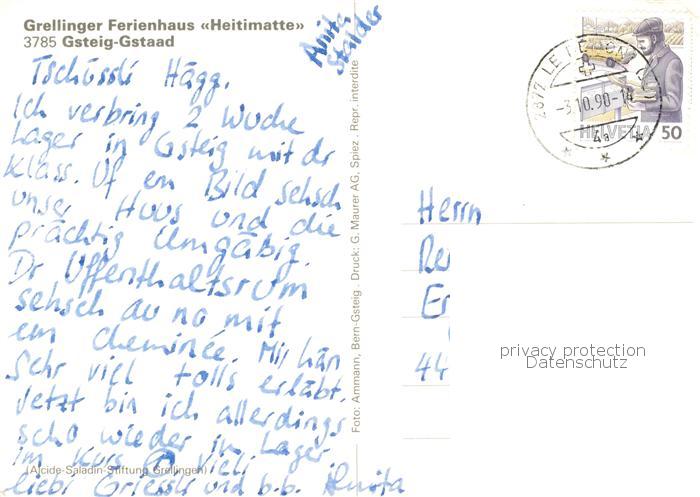 Grellinger Ferienhaus «Heitimatte»
3785 Gsteig-Gstaad
Anita
Stalder
Tschüssli Hägg.
Ich verbring 2 Wuche
Lager in Gsteig mit dr
Klass. Uf em Bild sehsch
unser Huus und die
prächtig Umgäbig.
Dr Uffenthaltsrum
sehsch au no mit
em Cheminée. Mir hän
sehr viel tolls erläbt.
Jetzt bin ich allerdings
scho wieder in Lager
im Kurs Vieli
(Alcide-Saladin-Stiftung Grellingen)
liebi Griessli und b.b. Anita
Foto: Ammann, Bern-Gsteig . Druck: G. Maurer AG, Spiez . Repr. interdite
-3.10.90-14
4a
HELVETIA 50
Herrn
Re
Er
44
privacy protection
Datenschutz